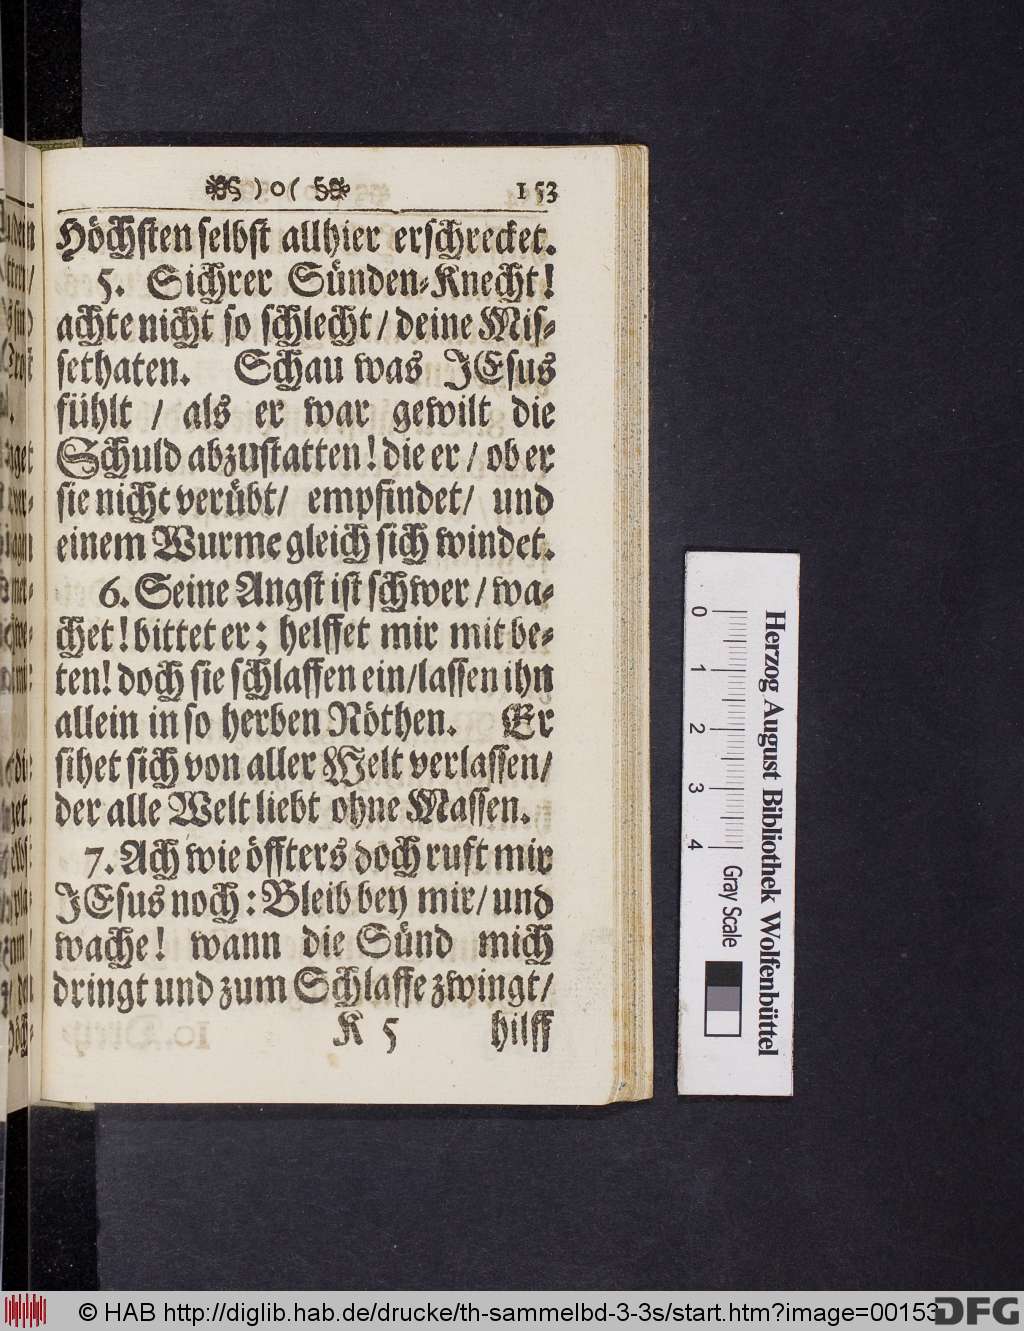 ) o ( 153
Höchsten selbst allhier erschrecket.
5. Sichrer Sünden-Knecht!
achte nicht so schlecht / deine Mis-
sethaten. Schau was JEsus
fühlt / als er war gewilt die
Schuld abzustatten! die er / ob er
sie nicht verübt / empfindet / und
einem Wurme gleich sich windet.
6. Seine Angst ist schwer / wa-
chet! bittet er; helffet mir mit be-
ten! doch sie schlaffen ein / lassen ihn
allein in so herben Nöthen. Er
sihet sich von aller Welt verlassen /
der alle Welt liebt ohne Massen.
7. Ach wie öffters doch ruft mir
JEsus noch: Bleib bey mir / und
wache! wann die Sünd mich
dringt und zum Schlaffe zwingt /
K 5 hilff
Herzog August Bibliothek Wolfenbüttel
0 1 2 3 4 Gray Scale
© HAB http://diglib.hab.de/drucke/th-sammelbd-3-3s/start.htm?image=00153
DFG